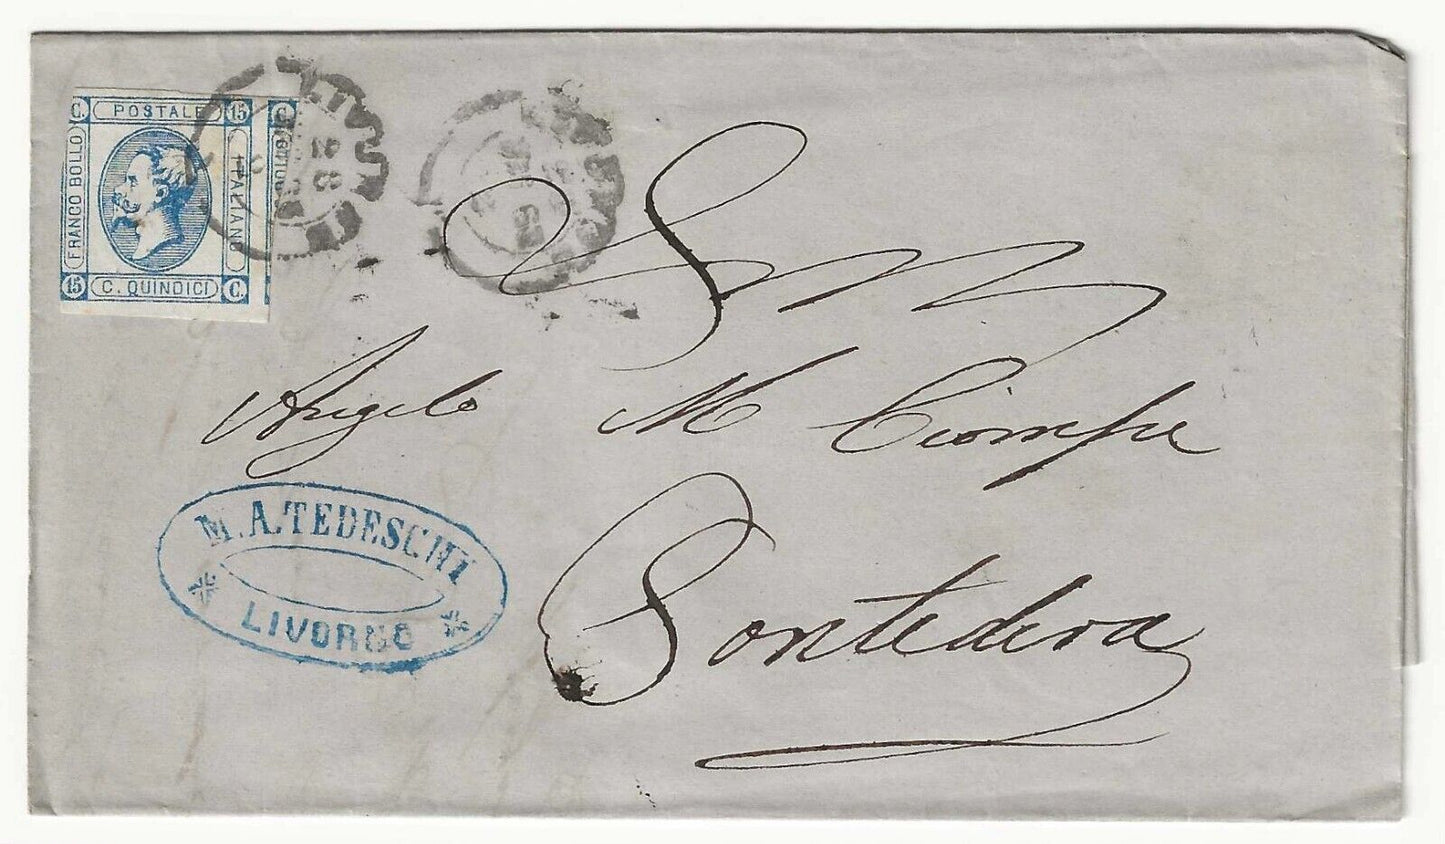 C. POSTALE 15 C.
FRANCO BOLLO
ITALIANO
15 C. QUINDICI C.
LIVORNO
28
63
Angelo M Ciompi
Pontedera
M. A. TEDESCHI
LIVORNO